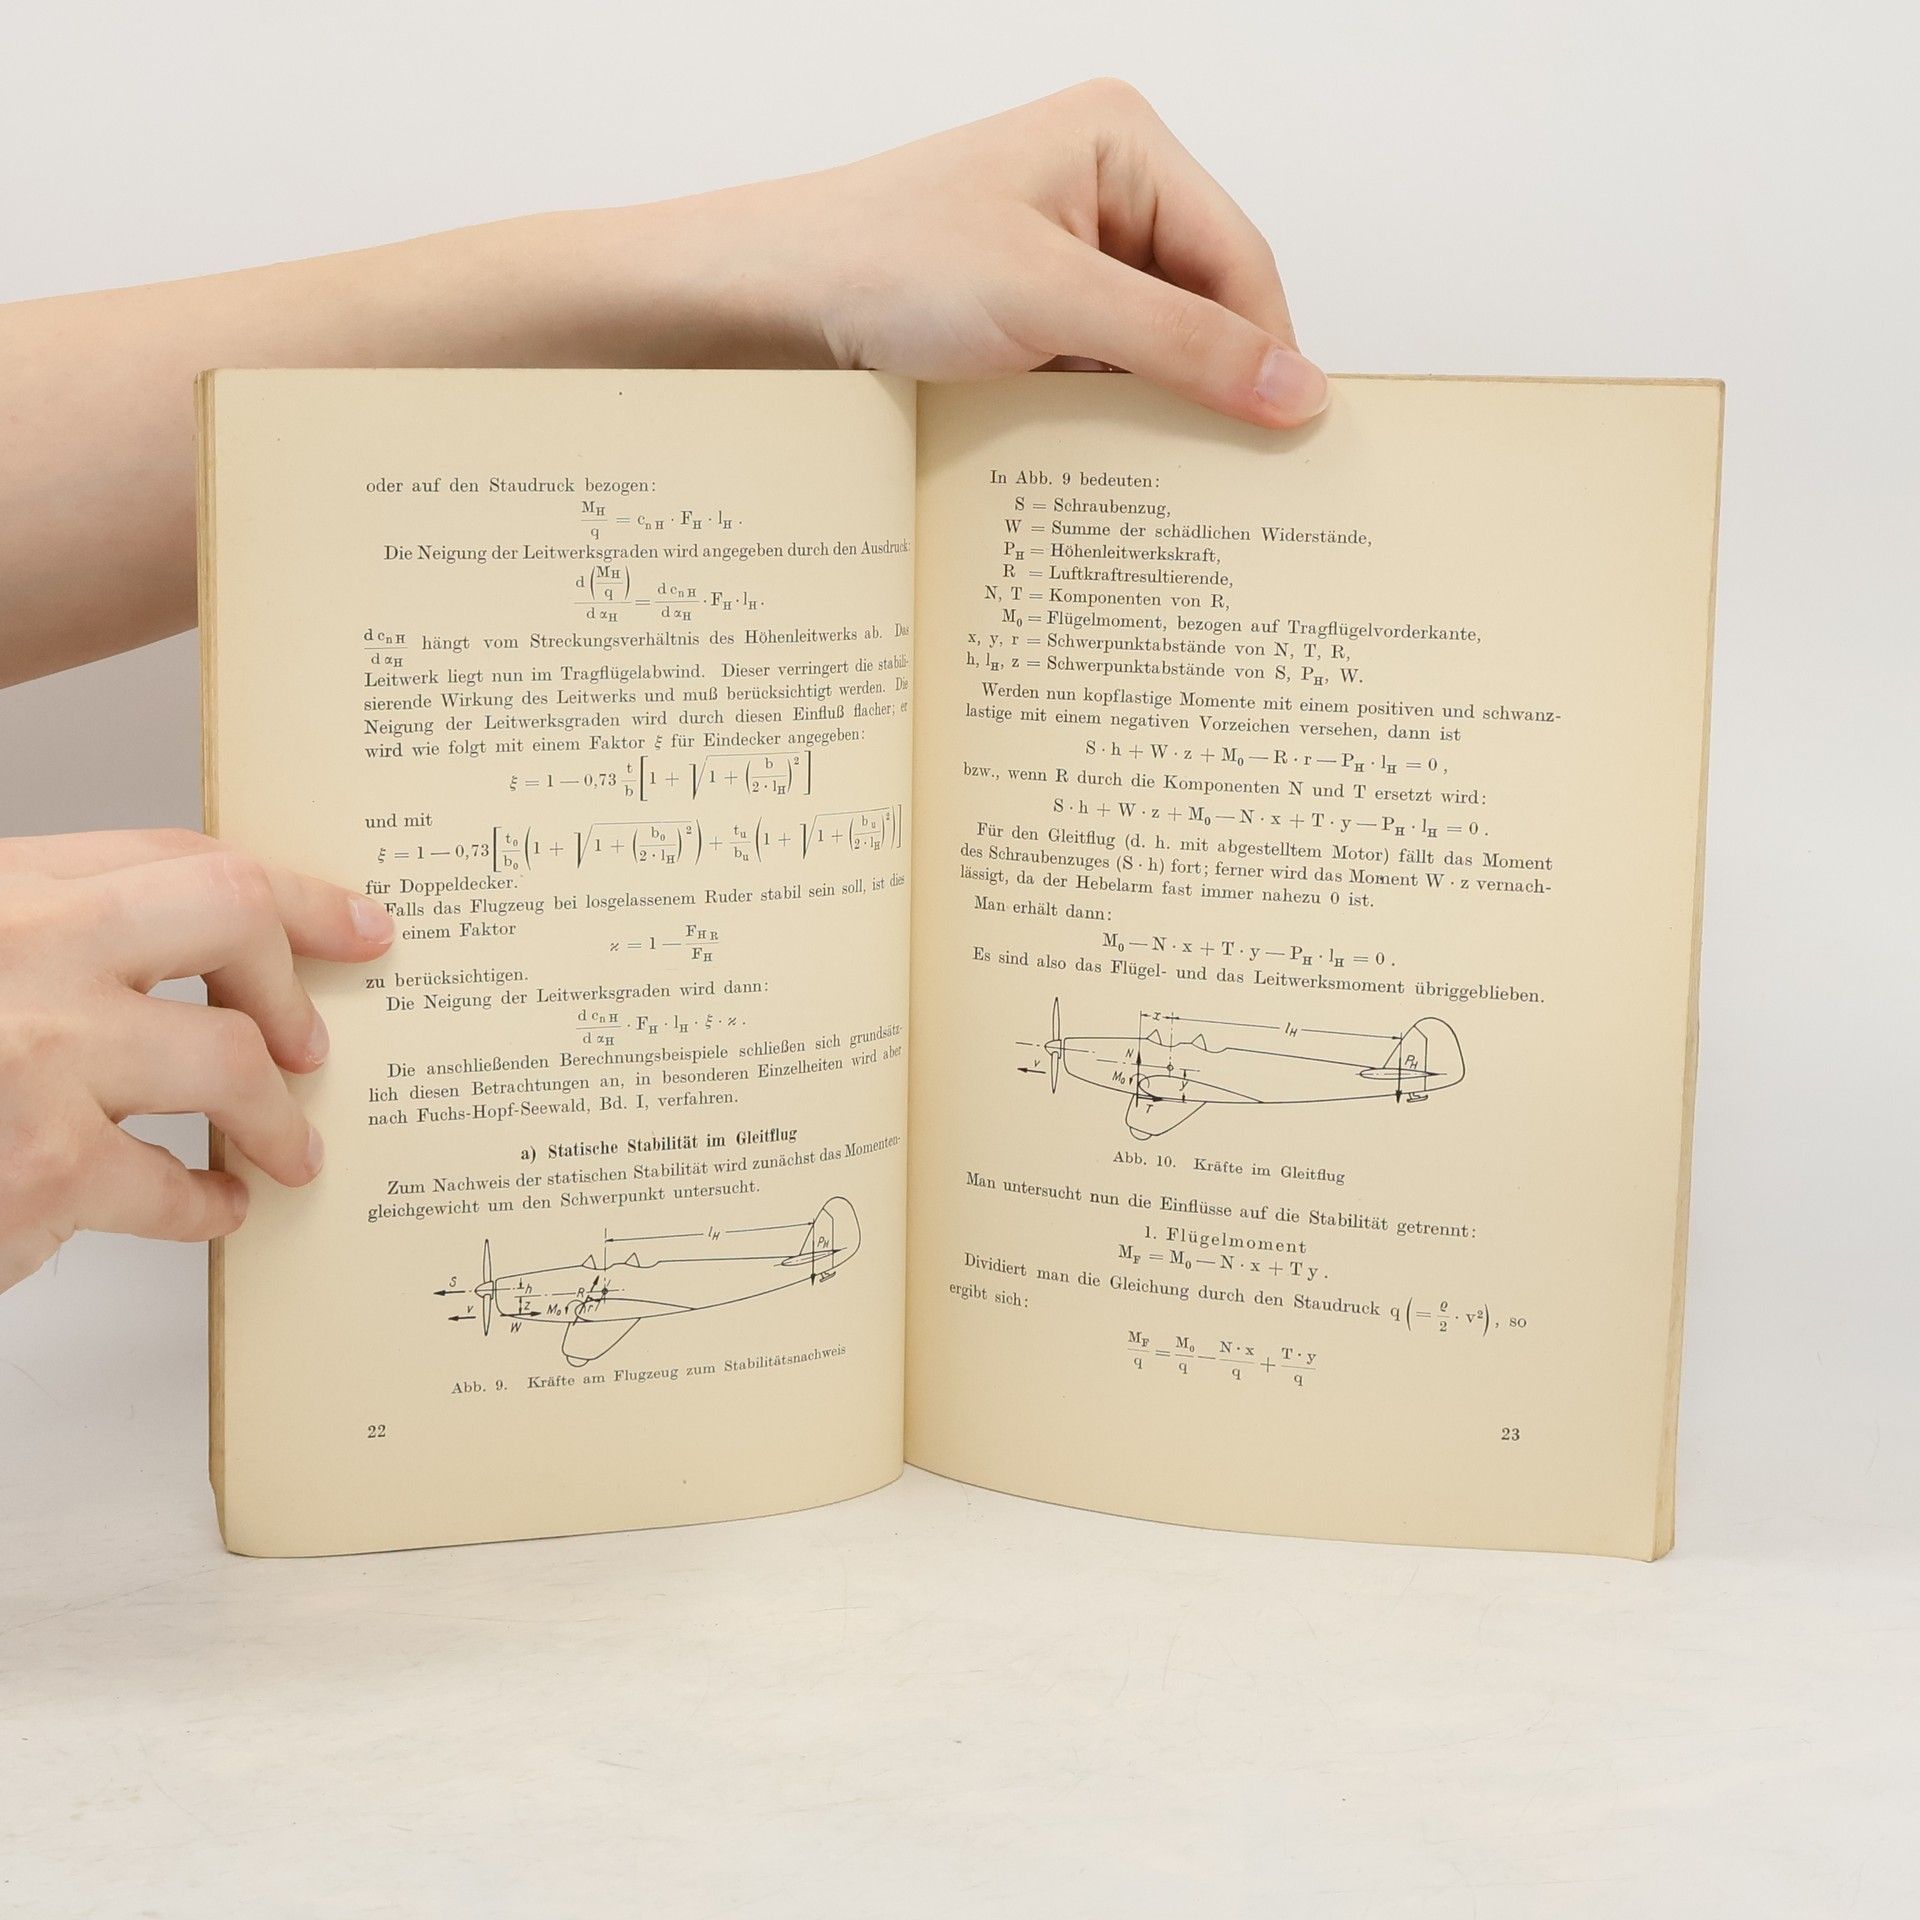 oder auf den Staudruck bezogen:
M_H/q = c_nH · F_H · l_H .
Die Neigung der Leitwerksgraden wird angegeben durch den Ausdruck:
d(M_H/q)/dα_H = dc_nH/dα_H · F_H · l_H .
dc_nH/dα_H hängt vom Streckungsverhältnis des Höhenleitwerks ab. Das
Leitwerk liegt nun im Tragflügelabwind. Dieser verringert die stabili-
sierende Wirkung des Leitwerks und muß berücksichtigt werden. Die
Neigung der Leitwerksgraden wird durch diesen Einfluß flacher; er
wird wie folgt mit einem Faktor ξ für Eindecker angegeben:
ξ = 1 — 0,73 t/b [1 + √(1 + (b/(2 · l_H))²)]
und mit
ξ = 1 — 0,73 [t_o/b_o (1 + √(1 + (b_o/(2 · l_H))²)) + t_u/b_u (1 + √(1 + (b_u/(2 · l_H))²))]
für Doppeldecker.
Falls das Flugzeug bei losgelassenem Ruder stabil sein soll, ist dies
einem Faktor
ϰ = 1 — F_HR/F_H
zu berücksichtigen.
Die Neigung der Leitwerksgraden wird dann:
dc_nH/dα_H · F_H · l_H · ξ · ϰ .
Die anschließenden Berechnungsbeispiele schließen sich grundsätz-
lich diesen Betrachtungen an, in besonderen Einzelheiten wird aber
nach Fuchs-Hopf-Seewald, Bd. I, verfahren.
a) Statische Stabilität im Gleitflug
Zum Nachweis der statischen Stabilität wird zunächst das Momenten-
gleichgewicht um den Schwerpunkt untersucht.
l_H
P_H
S
h
R
v
z
M_0
r
W
Abb. 9. Kräfte am Flugzeug zum Stabilitätsnachweis
22
In Abb. 9 bedeuten:
S = Schraubenzug,
W = Summe der schädlichen Widerstände,
P_H = Höhenleitwerkskraft,
R = Luftkraftresultierende,
N, T = Komponenten von R,
M_0 = Flügelmoment, bezogen auf Tragflügelvorderkante,
x, y, r = Schwerpunktabstände von N, T, R,
h, l_H, z = Schwerpunktabstände von S, P_H, W.
Werden nun kopflastige Momente mit einem positiven und schwanz-
lastige mit einem negativen Vorzeichen versehen, dann ist
S · h + W · z + M_0 — R · r — P_H · l_H = 0 ,
bzw., wenn R durch die Komponenten N und T ersetzt wird:
S · h + W · z + M_0 — N · x + T · y — P_H · l_H = 0 .
Für den Gleitflug (d. h. mit abgestelltem Motor) fällt das Moment
des Schraubenzuges (S · h) fort; ferner wird das Moment W · z vernach-
lässigt, da der Hebelarm fast immer nahezu 0 ist.
Man erhält dann:
M_0 — N · x + T · y — P_H · l_H = 0 .
Es sind also das Flügel- und das Leitwerksmoment übriggeblieben.
x
l_H
N
P_H
v
M_0
y
T
Abb. 10. Kräfte im Gleitflug
Man untersucht nun die Einflüsse auf die Stabilität getrennt:
1. Flügelmoment
M_F = M_0 — N · x + T y .
Dividiert man die Gleichung durch den Staudruck q (= ϱ/2 · v²), so
ergibt sich:
M_F/q = M_0/q — N · x/q + T · y/q
23